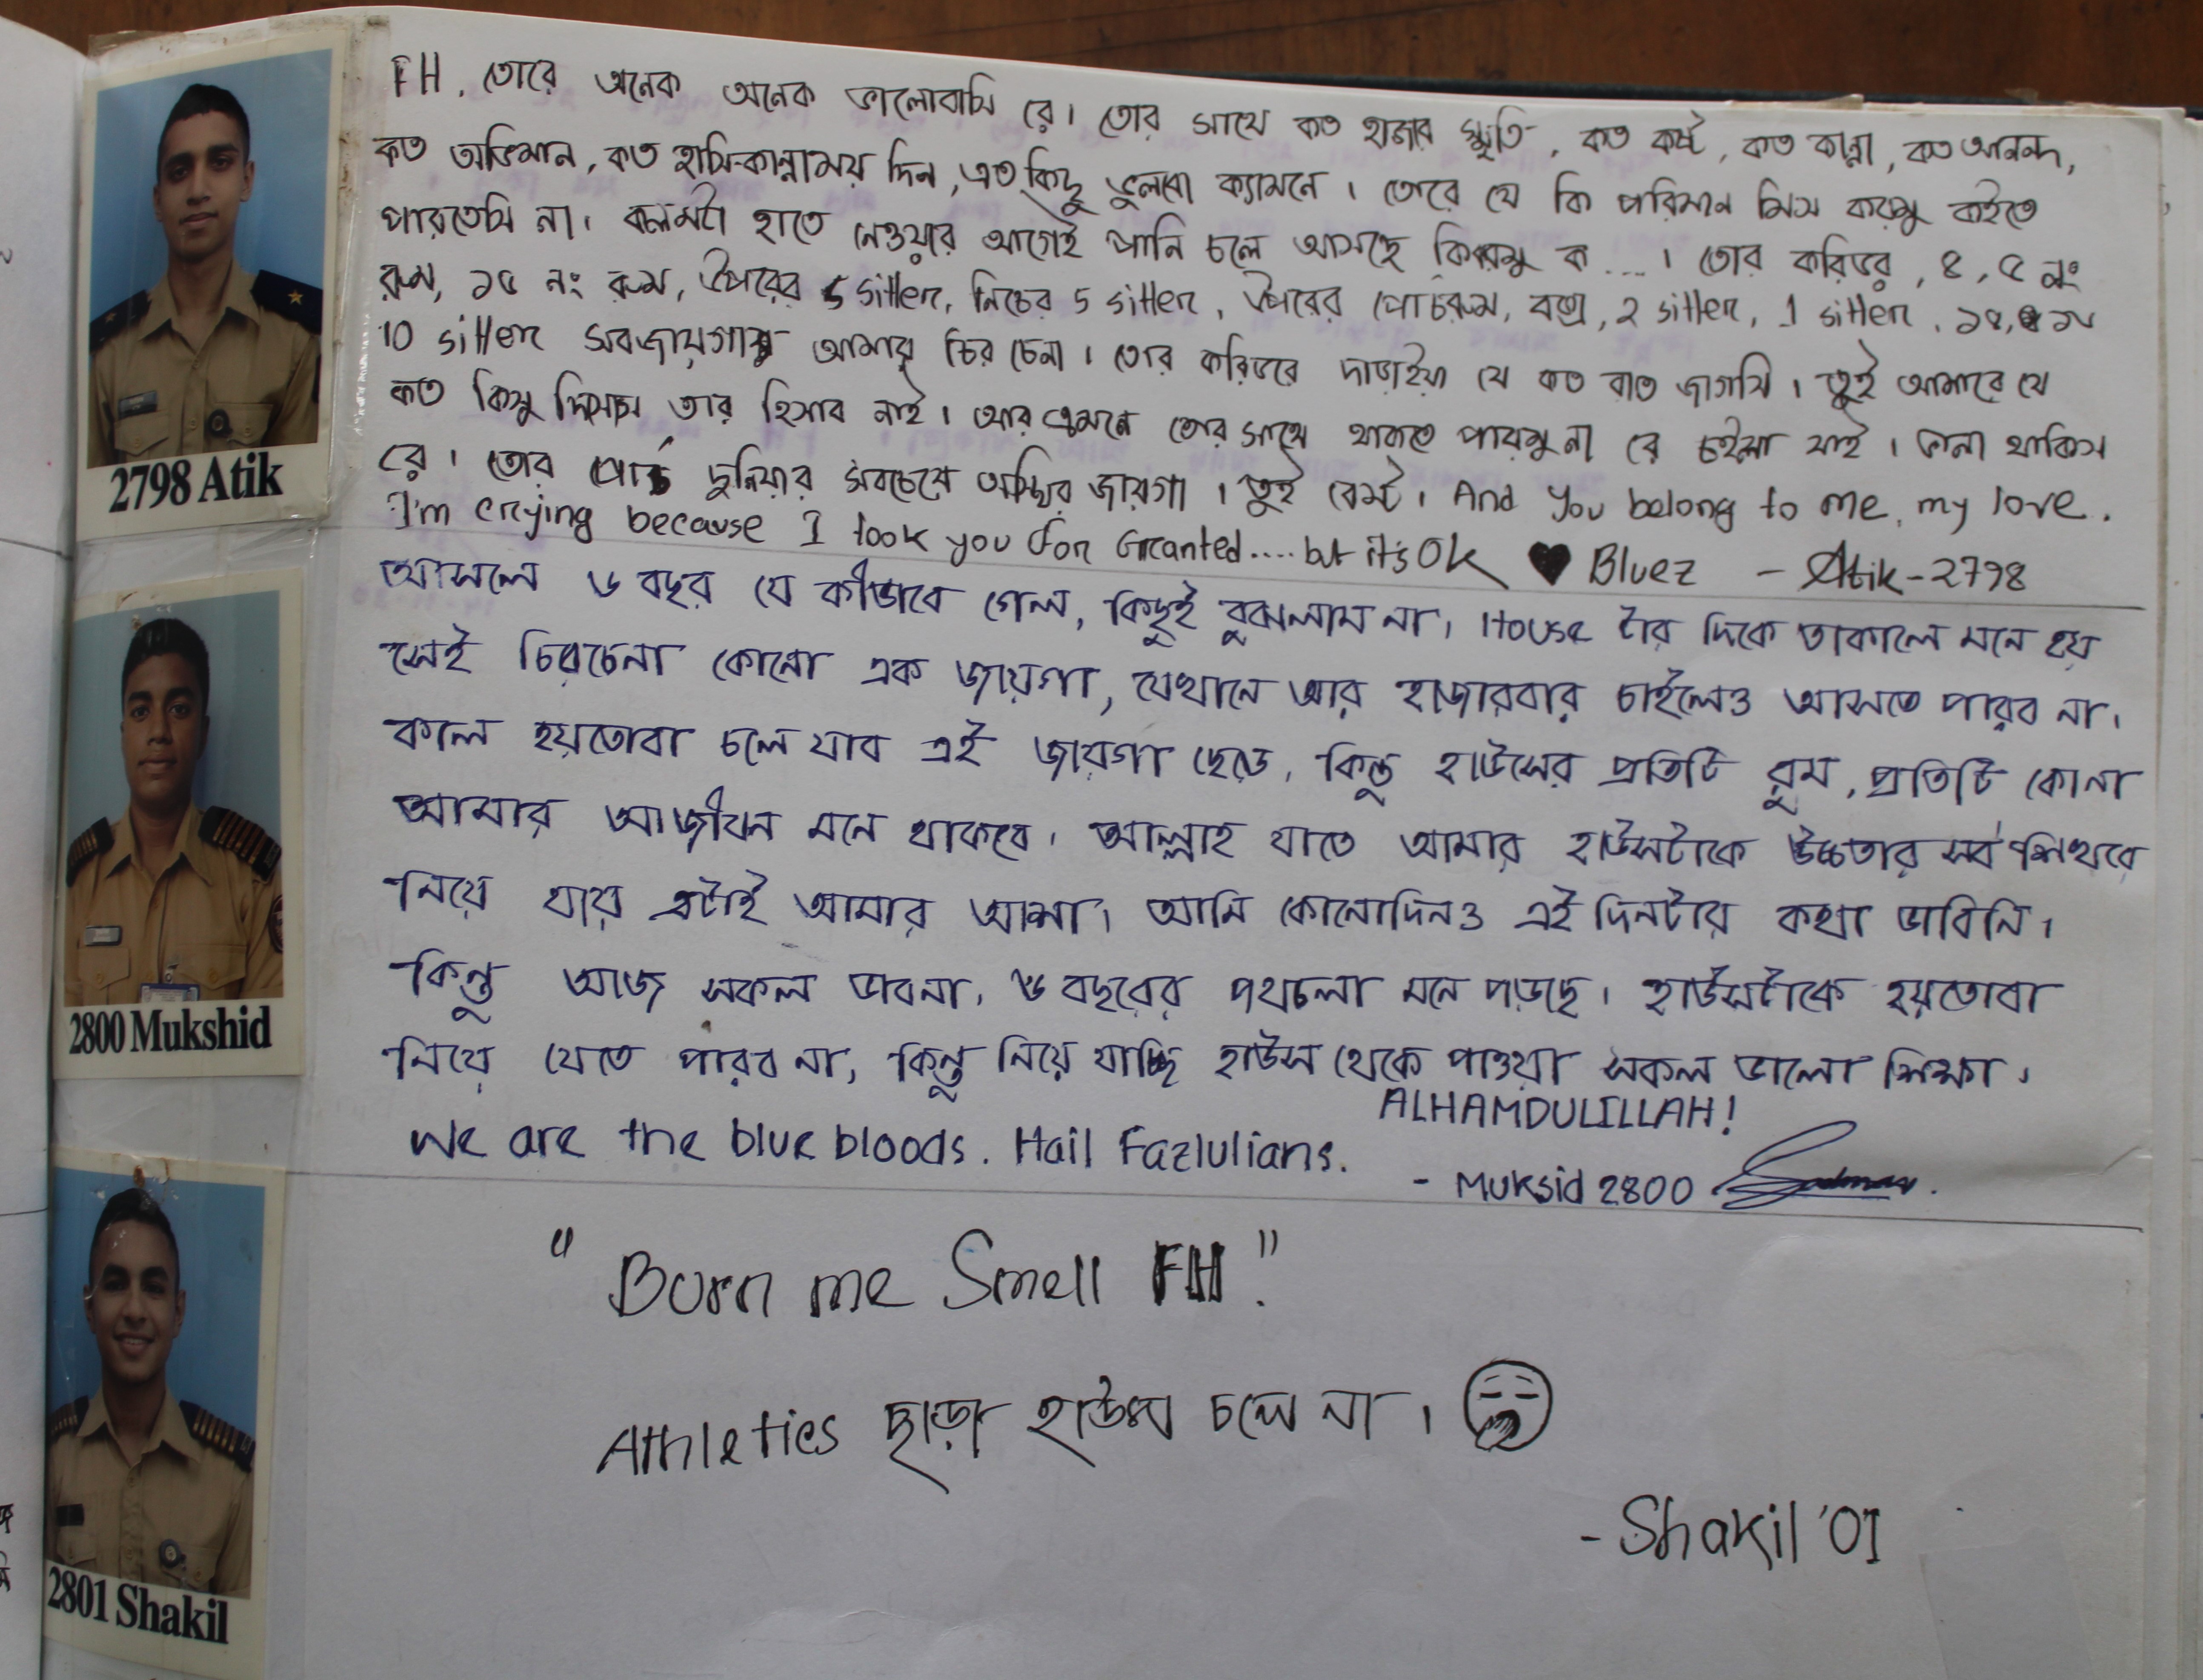 FH. তোরে অনেক অনেক ভালোবাসি রে। তোর সাথে কত হাজার স্মৃতি, কত কষ্ট, কত কান্না, কত আনন্দ,
কত অভিমান, কত হাসি-কান্নাময় দিন, এত কিছু ভুলবো ক্যামনে। তোরে যে কি পরিমান মিস করমু কইতে
পারতেসি না। কলমটা হাতে নেওয়ার আগেই পানি চলে আসছে কি করমু ক....। তোর করিডর, ৪, ৫ নং
রুম, ১৫ নং রুম, উপরের 5 sitter, নিচের 5 sitter, উপরের পোর্চরুম, বক্স, 2 sitter, 1 sitter, ১৪,
10 sitter সবজায়গায় আমার চির চেনা। তোর করিডরে দাড়াইয়া যে কত রাত জাগসি। তুই আমারে যে
কত কিসু দিসস তার হিসাব নাই। আর এমনে তোর সাথে থাকতে পারমু না রে চইলা যাই। ভালা থাকিস
রে। তোর পোর্চ দুনিয়ার সবচেয়ে অস্থির জায়গা। তুই বেস্ট। And you belong to me, my love.
I'm crying because I took you for Granted.... but it's Ok ♥ Bluez - Atik-2798
আসলে ৬ বছর যে কীভাবে গেল, কিছুই বুঝলাম না। House টার দিকে তাকালে মনে হয়
সেই চিরচেনা কোনো এক জায়গা, যেখানে আর হাজারবার চাইলেও আসতে পারব না।
কাল হয়তোবা চলে যাব এই জায়গা ছেড়ে, কিন্তু হাউসের প্রতিটি রুম, প্রতিটি কোনা
আমার আজীবন মনে থাকবে। আল্লাহ যাতে আমার হাউসটাকে উচ্চতার সর্ব শিখরে
নিয়ে যায় এটাই আমার আশা। আমি কোনোদিনও এই দিনটার কথা ভাবিনি।
কিন্তু আজ সকল ভাবনা, ৬ বছরের পথচলা মনে পড়ছে। হাউসটাকে হয়তোবা
নিয়ে যেতে পারব না, কিন্তু নিয়ে যাচ্ছি হাউস থেকে পাওয়া সকল ভালো শিক্ষা।
ALHAMDULILLAH!
We are the blue bloods. Hail Fazlulians.
- Muksid 2800
"Burn me Smell FH."
Athletics ছাড়া হাউস চলে না।
- Shakil '01
2798 Atik
2800 Mukshid
2801 Shakil